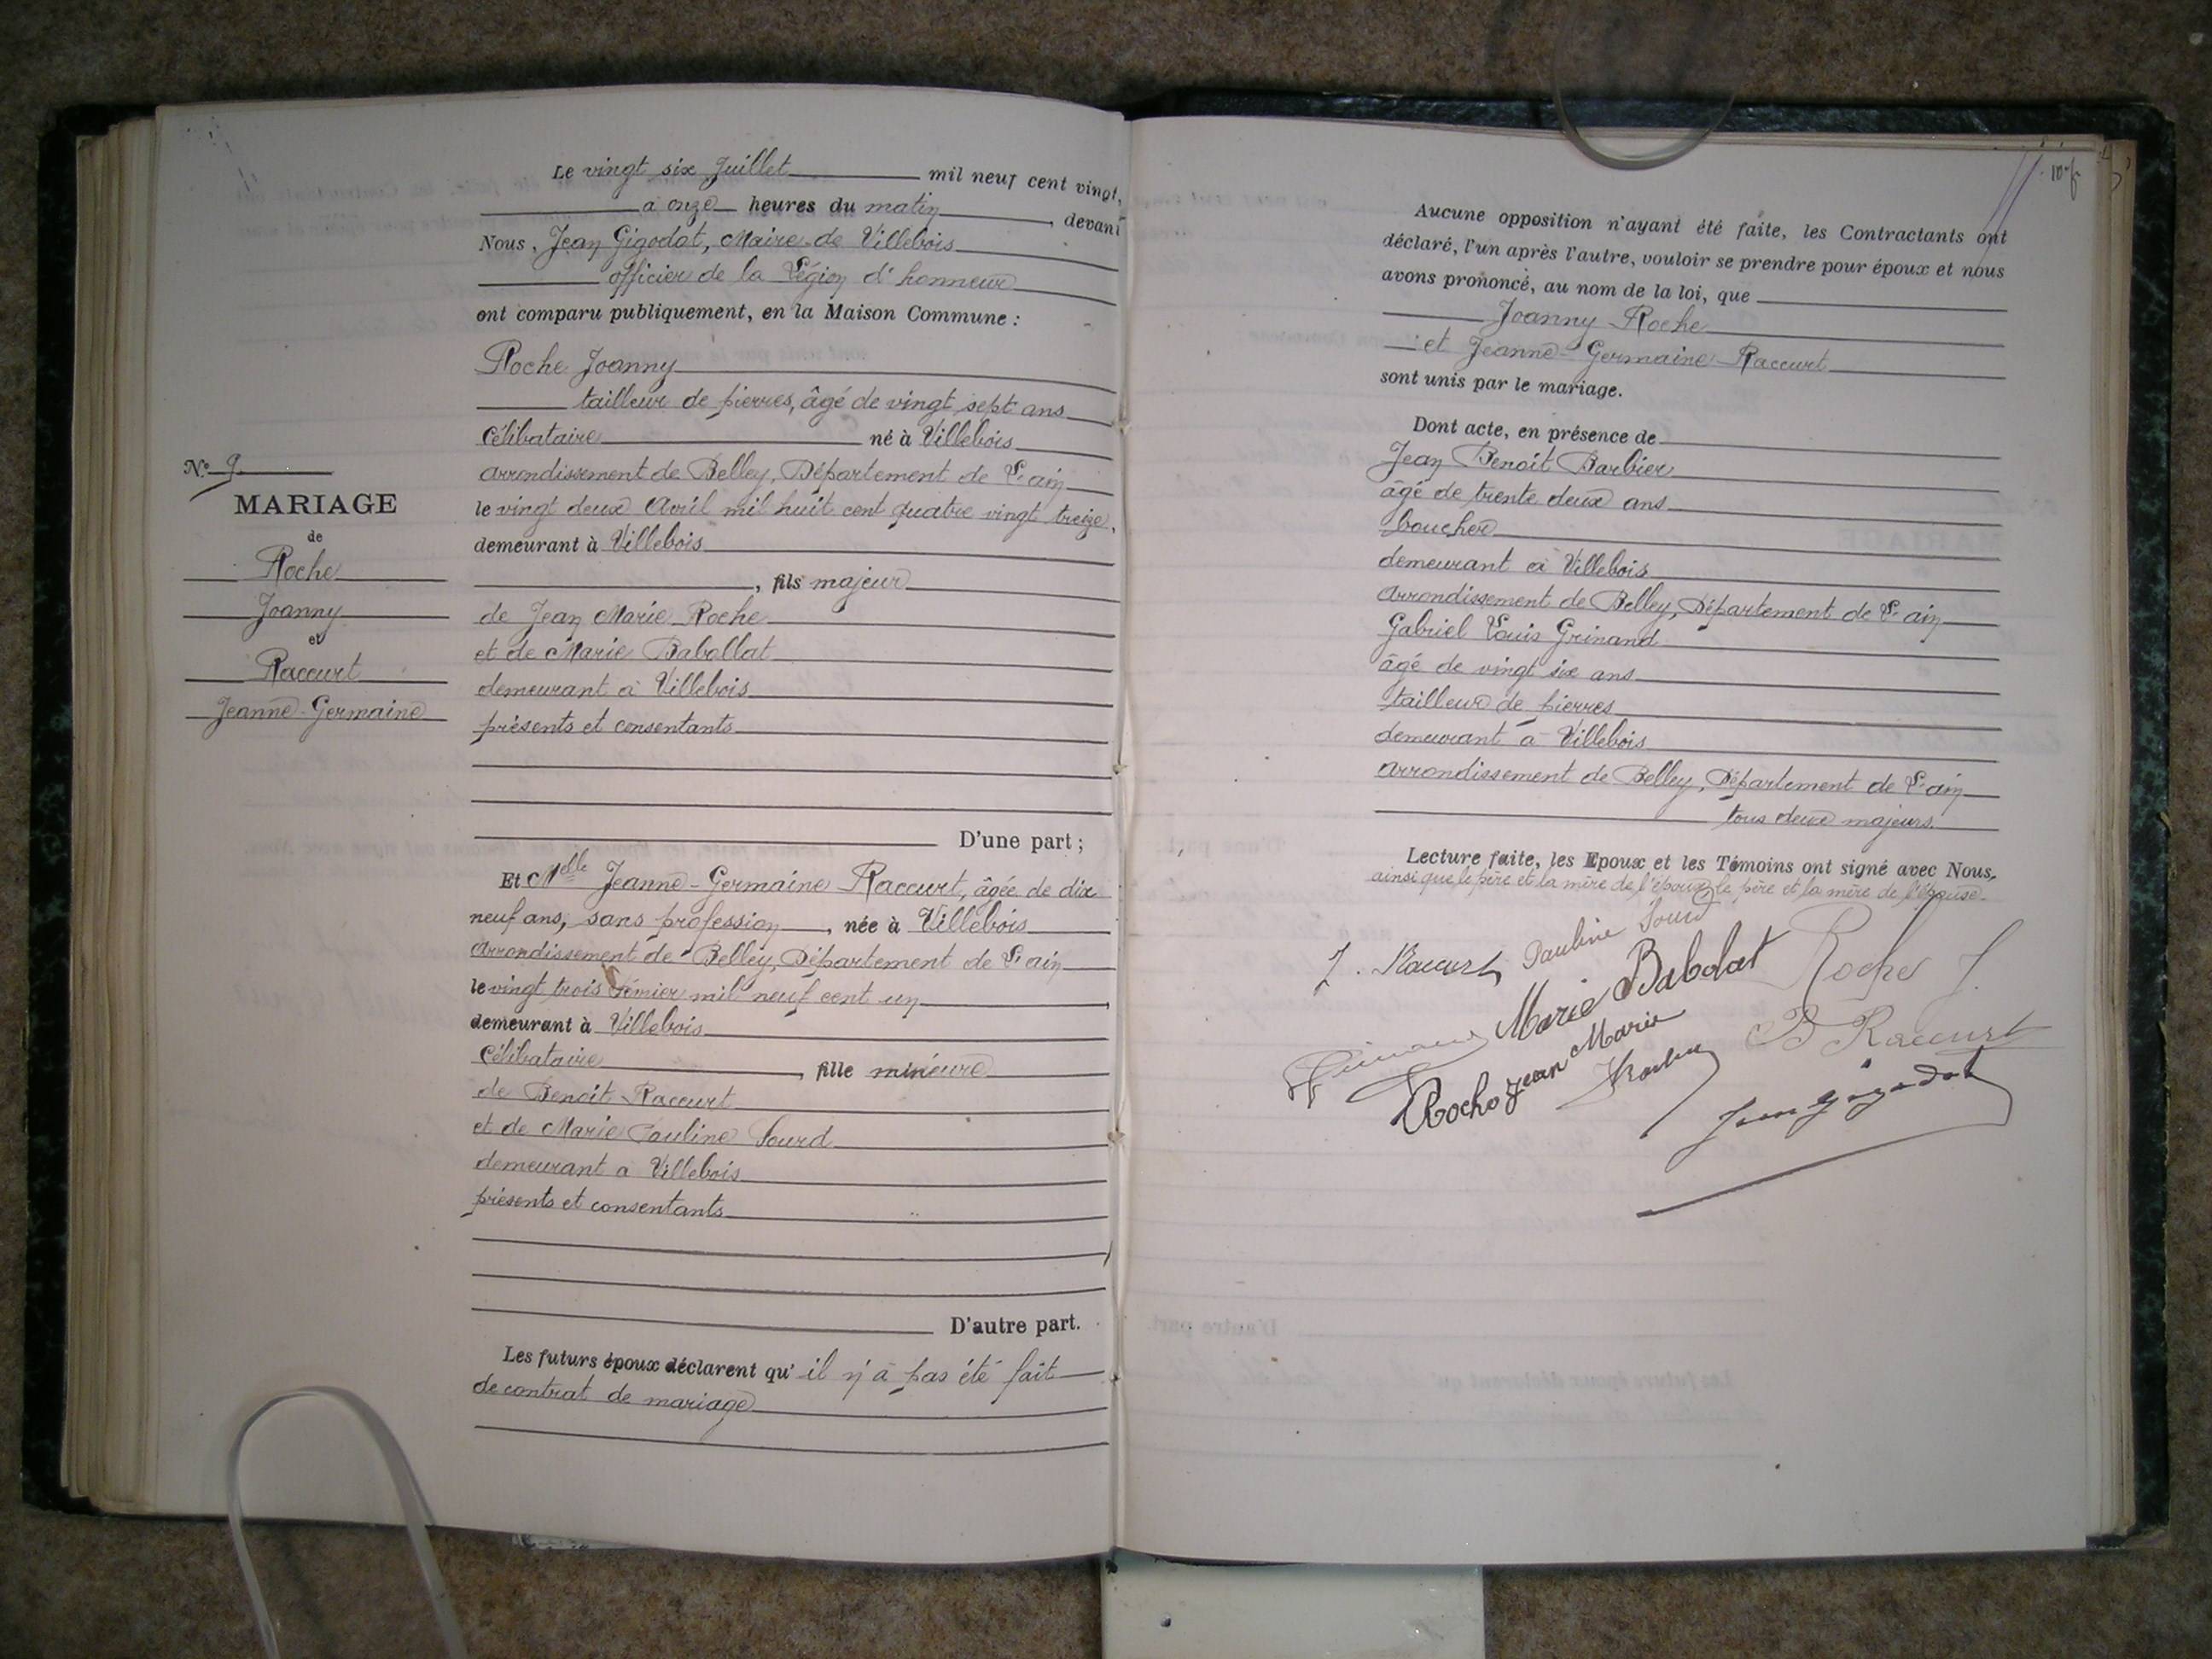 N° 9
MARIAGE
de
Roche
Joanny
et
Raccurt
Jeanne-Germaine
Le vingt six Juillet mil neuf cent vingt,
à onze heures du matin, devant
Nous, Jean Gigodot, Maire de Villebois
officier de la Légion d'honneur
ont comparu publiquement, en la Maison Commune :
Roche Joanny
tailleur de pierres, âgé de vingt sept ans
célibataire né à Villebois
arrondissement de Belley, Département de L'ain
le vingt deux Avril mil huit cent quatre vingt treize,
demeurant à Villebois
, fils majeur
de Jean Marie Roche
et de Marie Babollat
demeurant à Villebois
présents et consentants
D'une part ;
Et Melle Jeanne-Germaine Raccurt, âgée de dix
neuf ans, sans profession, née à Villebois
arrondissement de Belley, Département de L'ain
le vingt trois Février mil neuf cent un
demeurant à Villebois
célibataire, fille mineure
de Benoit Raccurt
et de Marie Pauline Sourd
demeurant à Villebois
présents et consentants
D'autre part.
Les futurs époux déclarent qu'il n'a pas été fait
de contrat de mariage
Aucune opposition n'ayant été faite, les Contractants ont
déclaré, l'un après l'autre, vouloir se prendre pour époux et nous
avons prononcé, au nom de la loi, que
Joanny Roche
et Jeanne-Germaine Raccurt
sont unis par le mariage.
Dont acte, en présence de
Jean Benoit Barbier
âgé de trente deux ans
boucher
demeurant à Villebois
arrondissement de Belley, Département de L'ain
Gabriel Louis Grinand
âgé de vingt six ans
tailleur de pierres
demeurant à Villebois
arrondissement de Belley, Département de L'ain
tous deux majeurs.
Lecture faite, les Epoux et les Témoins ont signé avec Nous,
ainsi que le père et la mère de l'époux, le père et la mère de l'épouse.
J. Raccurt Pauline Sourd
Marie Babolat Roche J.
Grinand Roche Jean Marie B Raccurt
Jean Gigodot